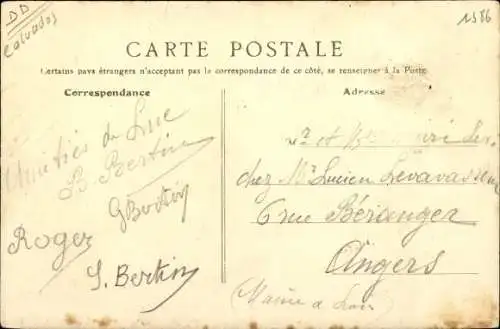 DD
Calvados
1586
CARTE POSTALE
Certains pays étrangers n'acceptant pas la correspondance de ce côté, se renseigner à la Poste
Correspondance
Amitiés de Luc
B. Bertin
G Bertin
Roger
S. Bertin
Adresse
et
chez Mr Lucien Levavasseur
6 rue Béranger
Angers
(Maine & Loire)